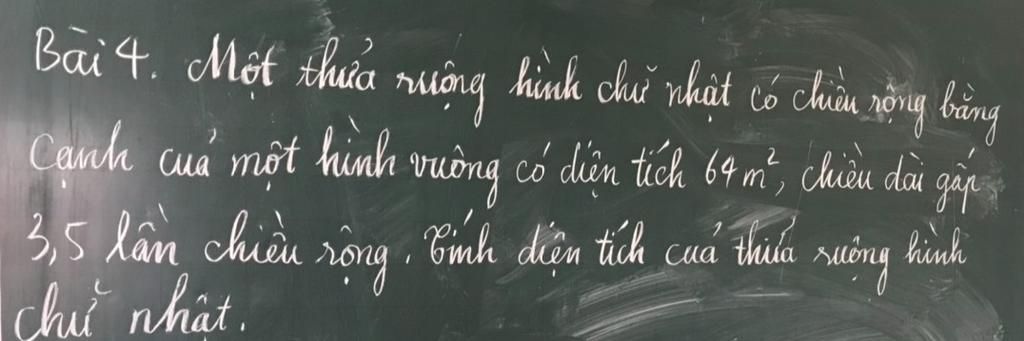 Bài 4. Một thửa ruộng hình chữ nhật có chiều rộng bằng
cạnh của một hình vuông có diện tích 64m², chiều dài gấp
3,5 lần chiều rộng. Tính diện tích của thửa ruộng hình
chữ nhật.